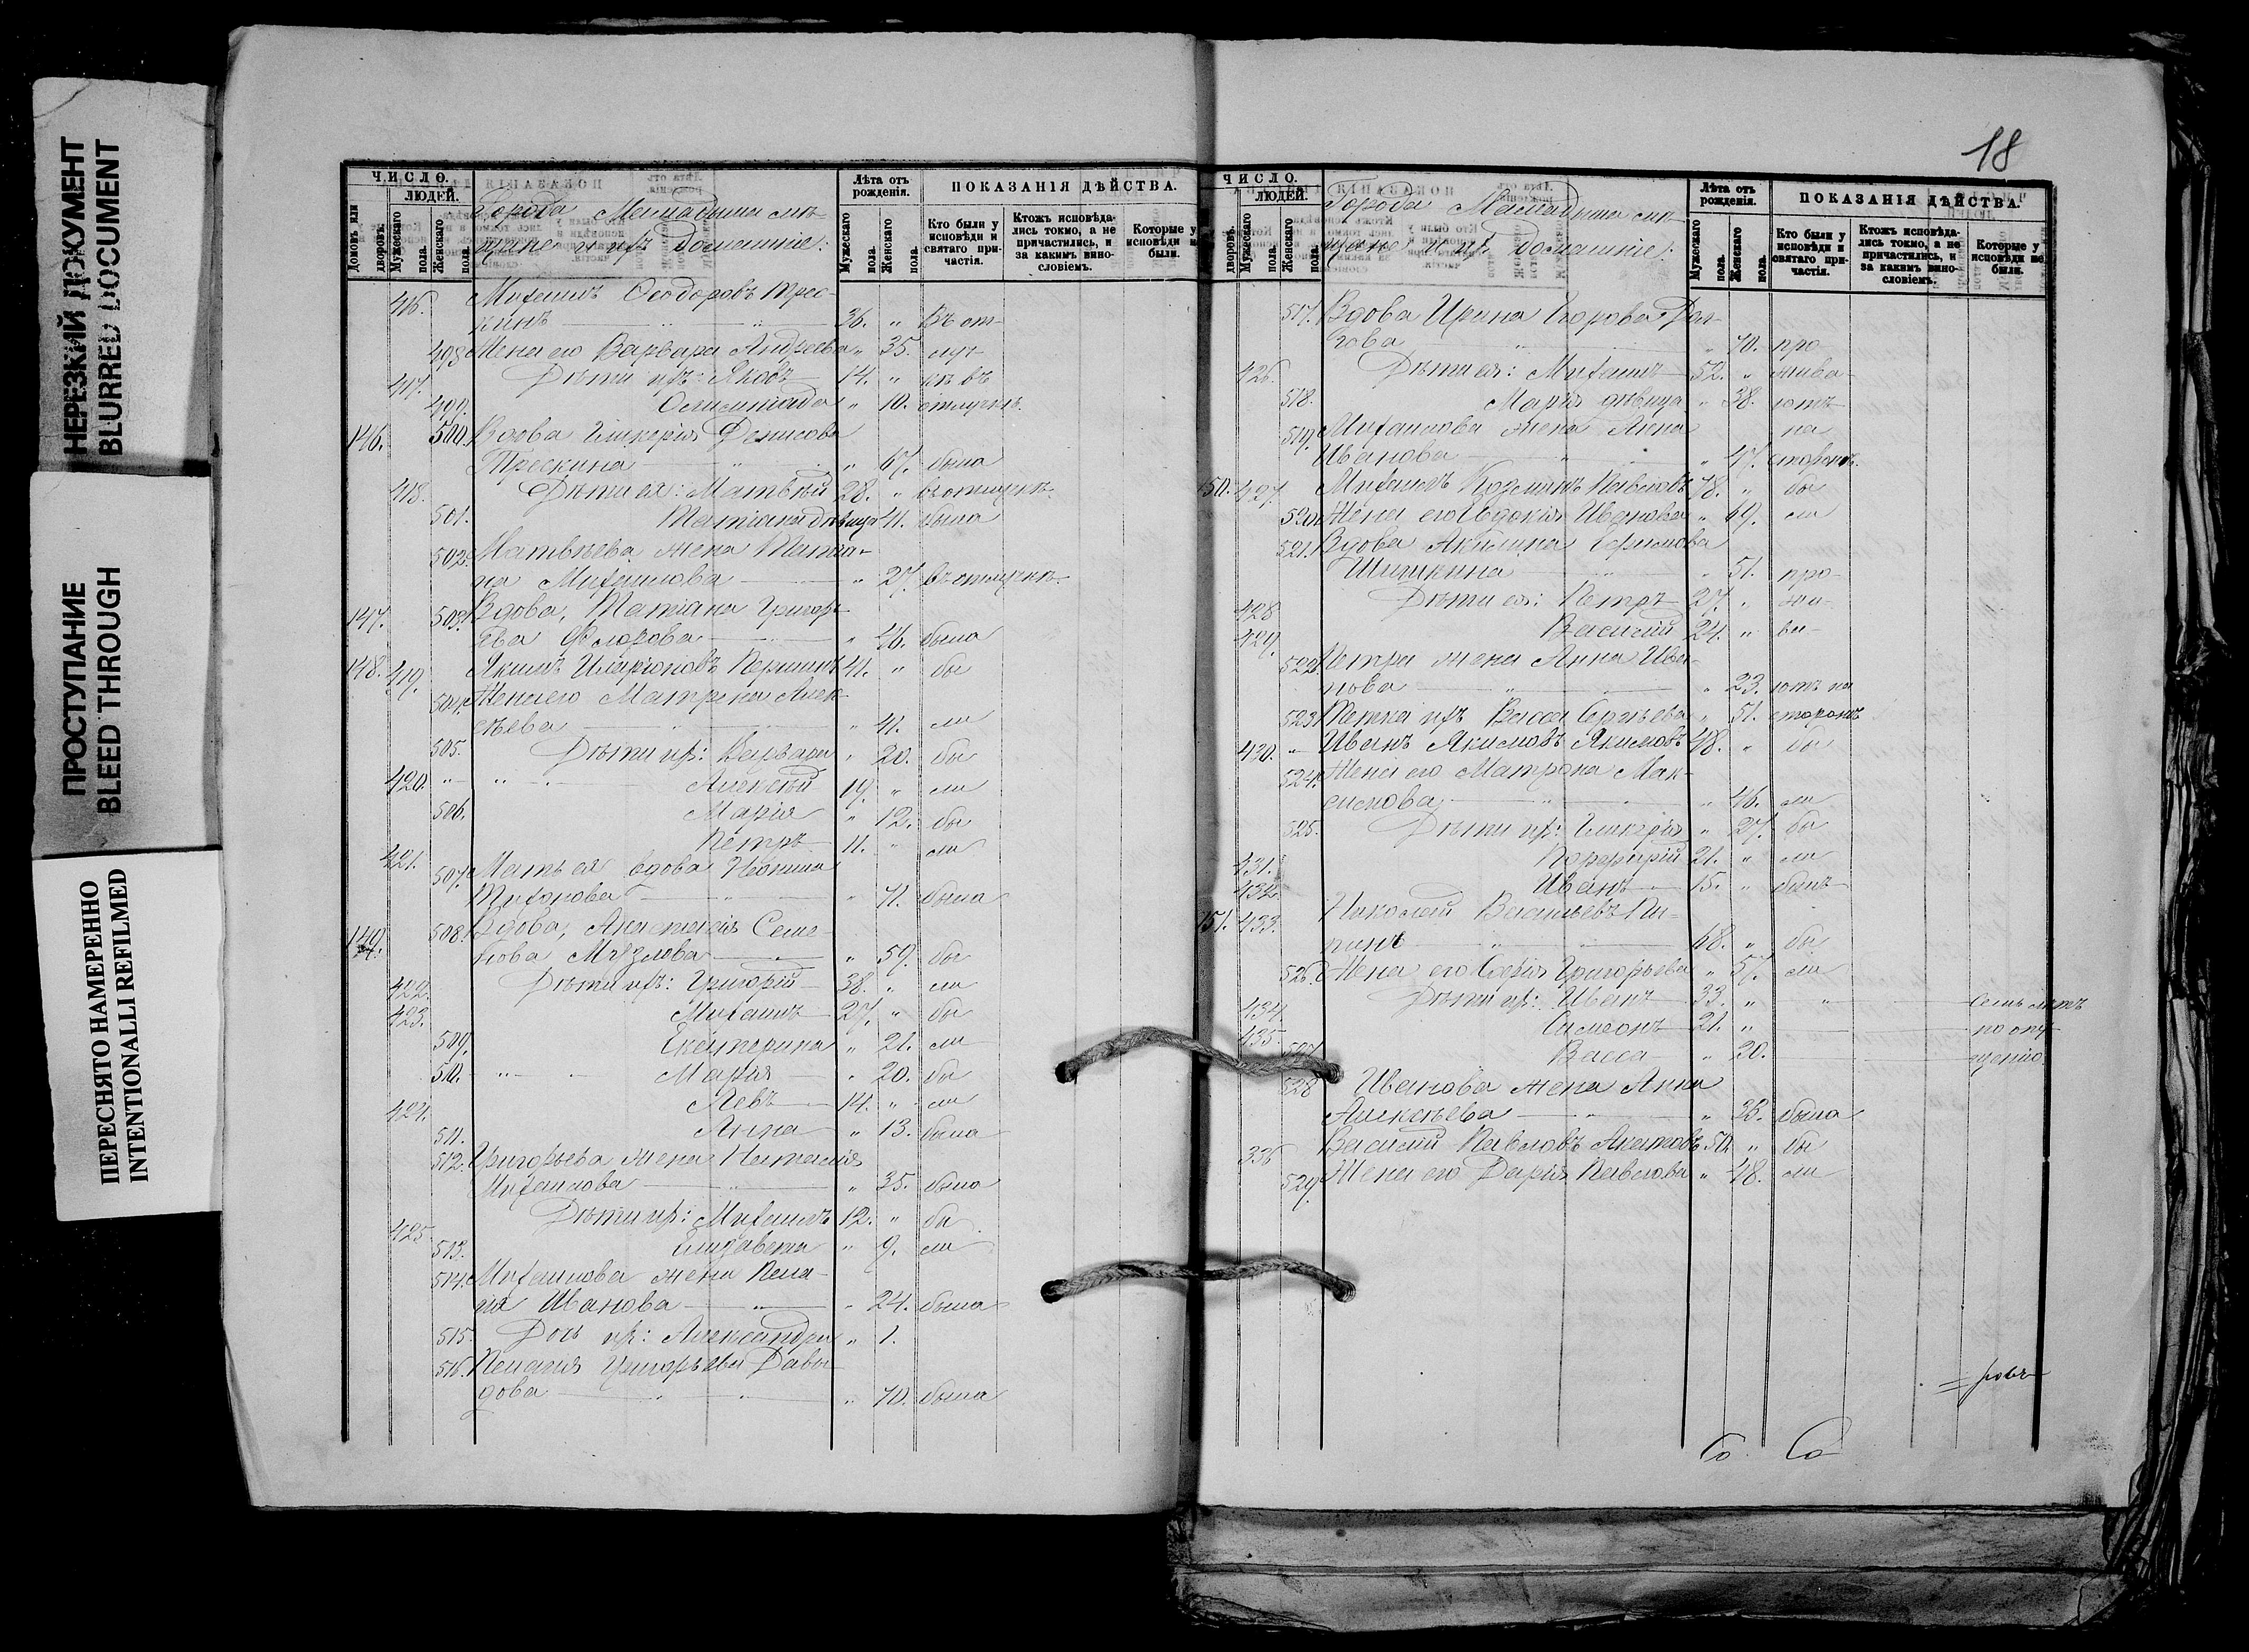 НЕРЕЗКИЙ ДОКУМЕНТ
BLURRED DOCUMENT
ПРОСТУПАНИЕ
BLEED THROUGH
ПЕРЕСНЯТО НАМЕРЕННО
INTENTIONALLI REFILMED
ЧИСЛО.
ЛЮДЕЙ.
Домовъ или дворовъ.
Мужескаго пола.
Женскаго пола.
Города Мамадыша мѣ-
щане и ихъ домашніе:
Лѣта отъ рожденія.
Мужескаго пола.
Женскаго пола.
ПОКАЗАНІЯ ДѢЙСТВА.
Кто были у исповѣди и святаго причастія.
Ктожъ исповѣдались токмо, а не причастились, и за какимъ винословіемъ.
Которые у исповѣди не были.
416. Михаилъ Ѳеодоровъ Трес-
кинъ 36. " въ от-
498 Жена его Варвара Андреева " 35. луч-
417. Дѣти ихъ: Яковъ 14. " кѣ въ
499. Олимпіада " 10. отлучкѣ.
146. 500. Вдова Гликерія Денисова
Трескина " 67. была
418. Дѣти ея: Матвѣй 28. " въ отлучкѣ.
501. Татіана дѣвица 41. была
502. Матвѣева жена Татіа-
на Михаилова " 27. въ отлучкѣ.
147. 503. Вдова, Татіана Григорь-
ева Флорова " 46. была
148. 419. Якимъ Иларіоновъ 41. " бы
504. Жена его Матрена Алек-
сѣева " 41. ли
505. Дѣти ихъ: Варвара " 20. бы
420. Алексѣй 19. " ли
506. Марія " 12. бы
421. Петръ 11. " ли
507. Мать ея вдова Неонила
Тихонова " 71. была
149. 508. Вдова, Анастасія Семе-
нова Музлова " 59. бы
422. Дѣти ихъ: Григорій 38. " ли
423. Михаилъ 27. " бы
509. Екатерина " 21. ли
510. Марія " 20. бы
424. Левъ 14. " ли
511. Анна " 13. была
512. Григорьева жена Наталія
Михаилова " 35. была
425. Дѣти ихъ: Михаилъ 12. " бы
513. Елизавета " 9. ли
514. Михаилова жена Пела-
гія Иванова " 24. была
515. Дочь ихъ: Александра " 1.
516. Пелагія Григорьева Давы-
дова " 70. была
18
ЧИСЛО.
ЛЮДЕЙ.
дворовъ.
Мужескаго пола.
Женскаго пола.
Города Мамадыша мѣ-
щане и ихъ домашніе:
Лѣта отъ рожденія.
Мужескаго пола.
Женскаго пола.
ПОКАЗАНІЯ ДѢЙСТВА.
Кто были у исповѣди и святаго причастія.
Ктожъ исповѣдались токмо, а не причастились, и за какимъ винословіемъ.
Которые у исповѣди не были.
517. Вдова Ирина Егорова Дол-
гова " 70. про
426. Дѣти ея: Михаилъ 52. " жива-
518. Марія дѣвица " 38. ютъ
519. Михаилова жена Анна на
Иванова " 47. сторонѣ.
150. 427. Михаилъ Козминъ Павловъ 78. " бы
520. Жена его Евдокія Иванова " 69. ли
521. Вдова Акилина Ефимова
Шишкина " 51. про-
428 Дѣти ея: Петръ 27. " жи-
429. Василій 24. " ва-
522. Петра жена Анна Ива-
нова " 23. ютъ на
523. Тетка ихъ Васса Сергѣева " 51. сторонѣ
430. " Иванъ Якимовъ Якимовъ 48. " бы
524. Жена его Матрона Мак-
симова " 46. ли
525. Дѣти ихъ: Гликерія " 27. бы
431. Порфирій 21. " ли
432. Иванъ 15. " былъ
151. 433. Николай Васильевъ Пи-
пинъ 68. " бы
526. Жена его Софія Григорьева " 57. ли
434 Дѣти ихъ: Иванъ 33. " " семь лѣтъ
435 Симеонъ 21. " по опу-
527 Васса " 20. щенію
528 Иванова жена Анна
Алексѣева " 36. была
336 Василій Павловъ 50. " бы
529. Жена его Дарія Павлова " 48. ли